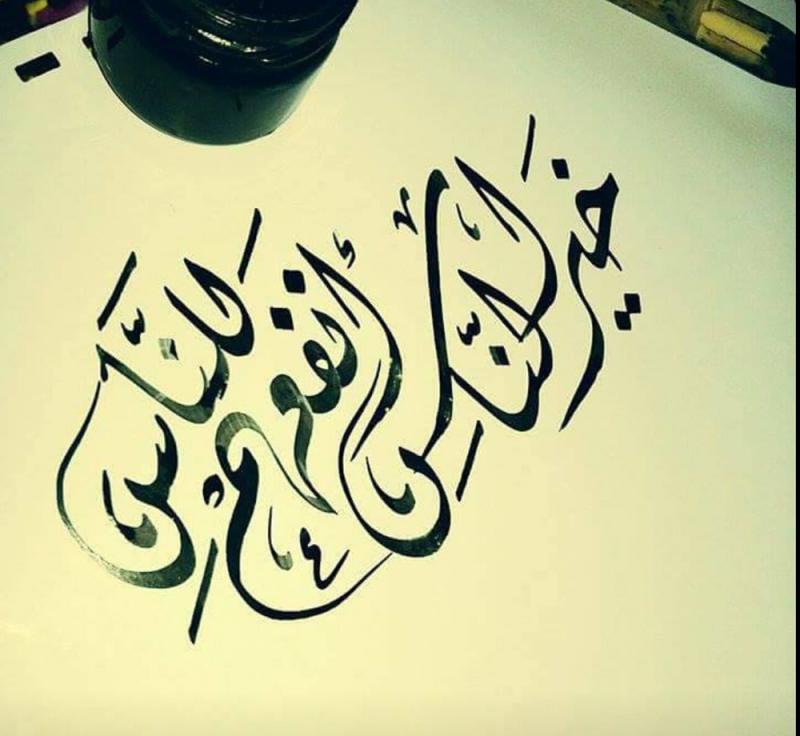 خير الناس أنفعهم للنَّاسِ